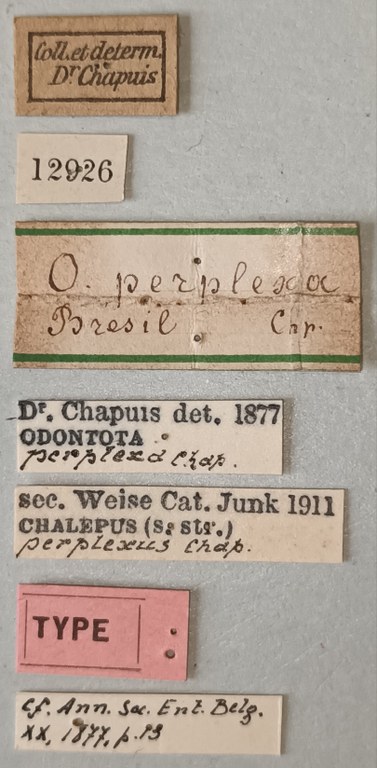 Coll. et determ.
Dr Chapuis
12926
O. perplexa
Bresil Chp.
Dr. Chapuis det. 1877
ODONTOTA
perplexa Chap.
sec. Weise Cat. Junk 1911
CHALEPUS (s. str.)
perplexus Chap.
TYPE
cf. Ann. Soc. Ent. Belg.
XX, 1877, p. 13